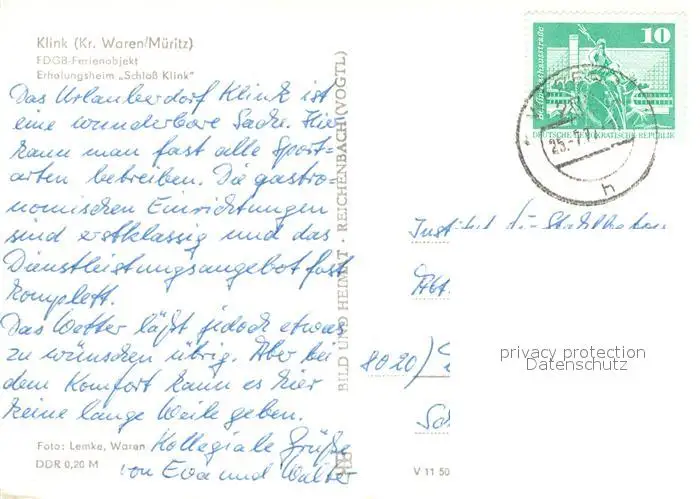 Klink (Kr. Waren/Müritz)
FDGB-Ferienobjekt
Erholungsheim „Schloß Klink"
Das Urlauberdorf Klink ist
eine wunderbare Sache. Hier
kann man fast alle Sport=
arten betreiben. Die gastro-
nomischen Einrichtungen
sind erstklassig und das
Dienstleistungsangebot fast
komplett.
Das Wetter läßt jedoch etwas
zu wünschen übrig. Aber bei
dem Komfort kann es hier
keine lange Weile geben.
Kollegiale Grüße
von Eva und Walter
Foto: Lemke, Waren
DDR 0,20 M
BILD UND HEIMAT · REICHENBACH (VOGTL)
V 11 50
10
DEUTSCHE DEMOKRATISCHE REPUBLIK
25.-7.
h
Institut
Abt.
8020)
privacy protection
Datenschutz